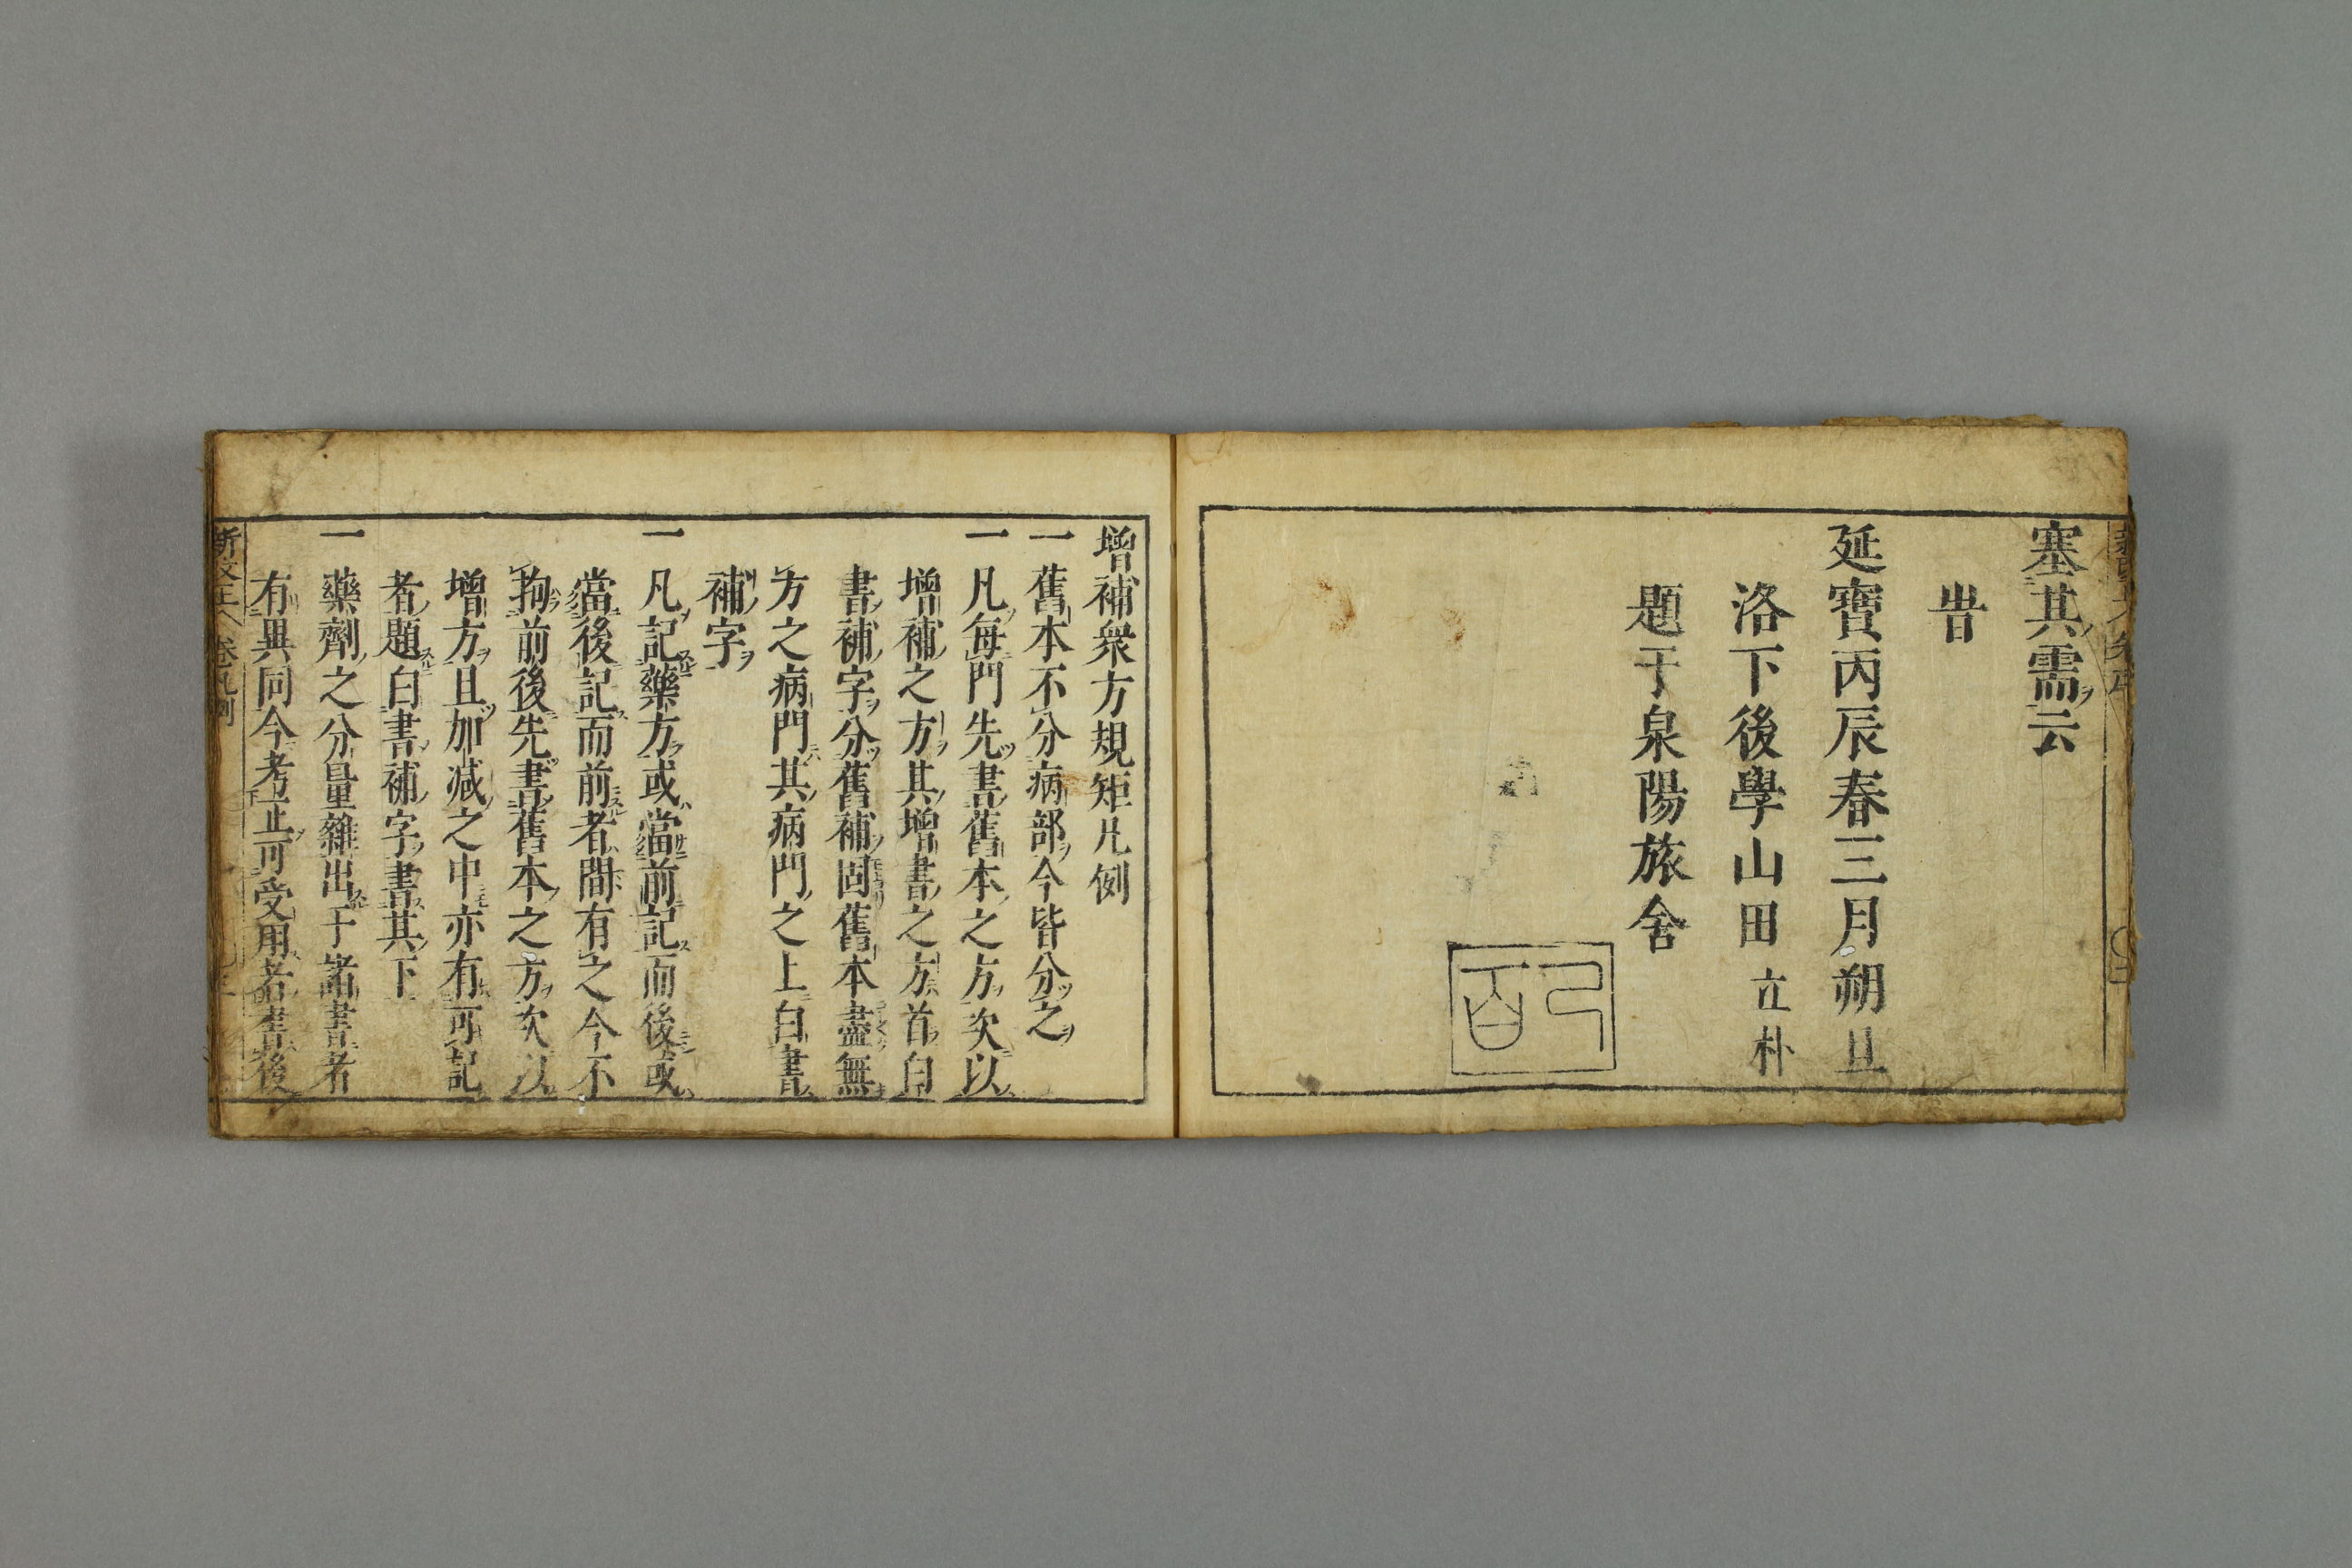 塞其需云
旹
延寶丙辰春三月朔旦
洛下後學山田立朴
題于泉陽旅舎
増補衆方規矩凡例
一舊本不分病部今皆分之
一凡毎門先書舊本之方次以
増補之方其増書之方首白
書補字分舊補固舊本盡無
方之病門其病門之上白書
補字
一凡記藥方或當前記而後或
當後記而前者間有之今不
拘前後先書舊本之方次以
増方且加减之中亦有可記
者題白書補字書其下
一藥劑之分量雜出于諸書者
有異同今考正可受用者書後